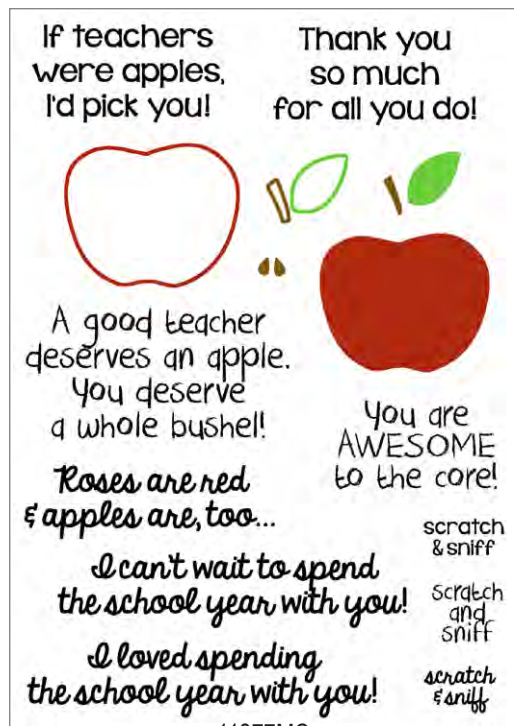 If teachers
were apples,
I'd pick you!
Thank you
so much
for all you do!
A good teacher
deserves an apple.
You deserve
a whole bushel!
You are
AWESOME
to the core!
Roses are red
& apples are, too...
scratch
& sniff
I can't wait to spend
the school year with you!
scratch
and
sniff
I loved spending
the school year with you!
scratch
& sniff